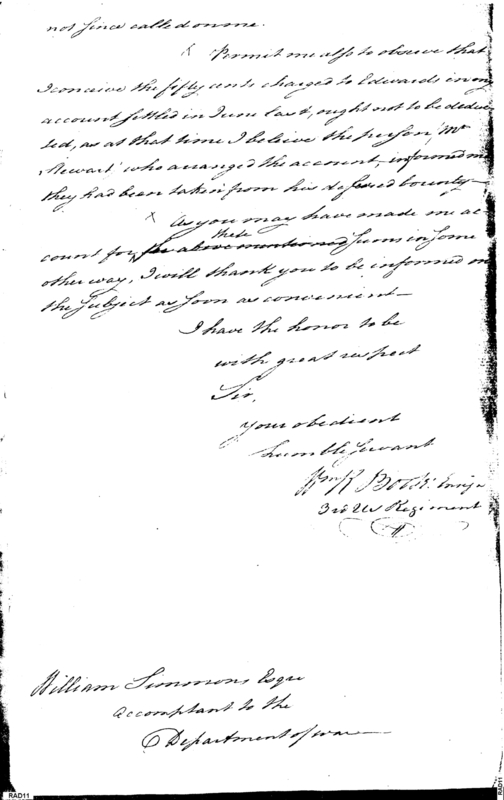 not since called on me.
X Permit me also to observe that
I conceive the fifty cents charged to Edwards in my
account settled in June last, ought not to be deduc
ted, as at that time I believe the person, Mr
Stewart who arranged the account, informed me
they had been taken from his defered bounty—
X As you may have made me ac
these
count for, the above mentioned sums in some
other way, I will thank you to be informed on
the subject as soon as convenient—
I have the honor to be
with great respect
Sir,
your obedient
humble Servant
Wm K Boote Ensign
3rd US Regiment
William Simmons Esqr
Accomptant to the
Department of war—
RAD11
RAD11